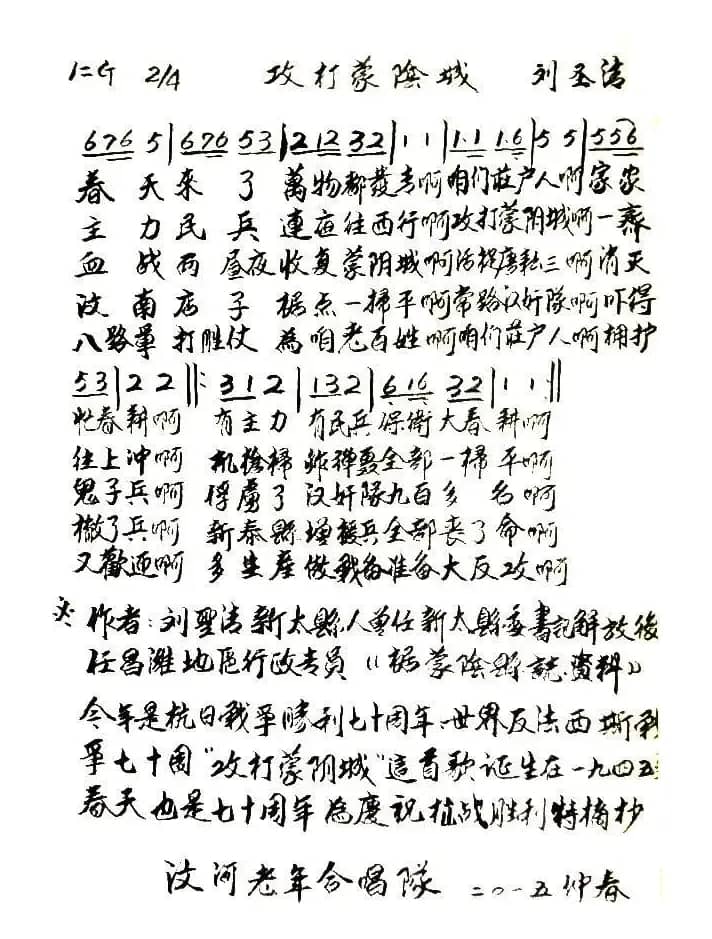 1=G 2/4 攻打蒙陰城 刘圣清
676 5|676 53|2 12 32|1 1|1.1 1.6|5 5|556
春天来了萬物都發芽啊咱们莊户人啊家家
主力民兵連夜往西行啊攻打蒙阴城啊一齊
血战两昼夜收复蒙阴城啊活捉唐耘三啊消灭
汶南店子据点一掃平啊常路汉奸隊啊吓得
八路軍打胜仗為咱老百姓啊咱们莊户人啊拥护
53|2 2‖:312|132|616 32|1 1:‖
忙春耕啊 有主力有民兵保衛大春耕啊
往上冲啊 机槍掃炸弹轟全部一掃平啊
鬼子兵啊 俘虜了汉奸隊九百多名啊
撤了兵啊 新泰縣增援兵全部丧了命啊
又歡迎啊 多生產做战备准备大反攻啊
※作者:刘聖清新太縣人曾任新太縣委書記解放後
任昌潍地區行政专員《据蒙陰縣誌資料》
今年是抗日戰爭勝利七十周年、世界反法西斯
爭七十周"攻打蒙阴城"這首歌诞生在一九四五
春天也是七十周年為慶祝抗战胜利特摘抄
汶河老年合唱隊 二〇一五仲春